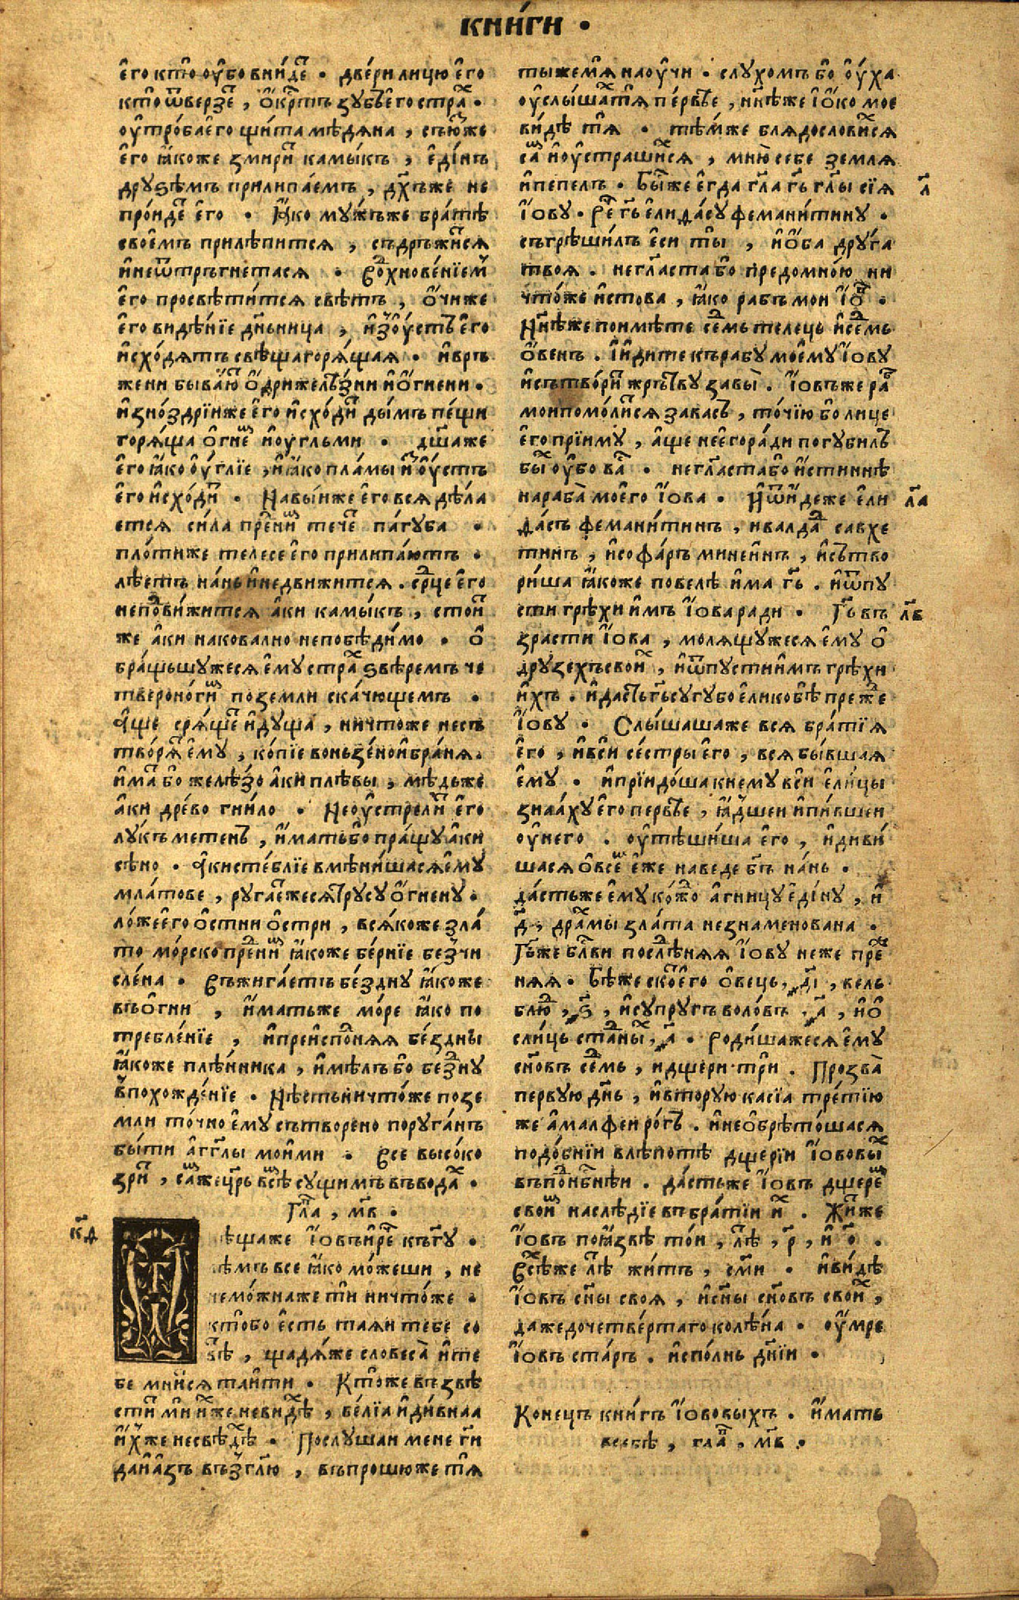 КНИ́ГИ ·
є҆го кто̀ ᲂу҆́бо вни́дⷷ · две́ри лицю̀ є҆го
кто̀ ѿверзе , ѻ҆́крⷭтъ зꙋбѣ є҆го страⷯ ·
ᲂу҆тро́ба є҆го щита мѣ́дѧна , съю́ꙁже
є҆го ꙗ҆́коже смириⷮ ка́мыкъ , є҆ди́нъ
дрꙋꙁѣмъ прилипа́емъ , дꙋ́хъже не
про́идⷷ є҆го · Ꙗ҆́ко мꙋ́жъже бра́тѣ
свое́мъ прилѣ́питсѧ , съдръжи́сѧ
и҆неѿтръгне́тасѧ · Въⷥхнове́нїемⷨ
є҆го просвѣти́тсѧ свѣ́тъ , ѻ҆́чиже
є҆го ви́дѣнїе дн҃ьница , и҆зоу́стъ є҆го
и҆схо́дѧтъ свѣща горѧ́щаѧ · и҆връ
жени быва́ю ѻ҆дрижелѣ́зни и҆ѻ҆́гнени ·
и҆зно́здрїиже є҆го и҆схо́диⷮ ды́мъ пе́щи
горѧ́ща ѻ҆гнеⷨ и҆оу́гльми · дш҃аже
є҆го ꙗ҆́ко ᲂу҆́глїе , и҆ꙗ҆́ко пла́мы и҆зоу́стъ
є҆го и҆схо́диⷮ · На вы́иже є҆го всѧ дѣ́ла
етсѧ си́ла преⷣниⷨ тече́ па́губа ·
пло́тиже телесе є҆го прилипа́ютъ ·
лѣе́тъ на́нь и҆недви́житсѧ . срⷣце є҆го
непⷪдви́житсѧ а҆́ки ка́мыкъ , стоиⷮ
же а҆́ки накова́лно непобѣди́мо · ѻ҆
бра́щьшꙋжесѧ є҆мꙋ̀ страⷯ ѕвѣремъ че
твероно́гиⷨ по земли скачющемъ ·
А҆́ще срѧ́щеⷮ и҆дꙋща , ничто́же несъ
тво́рѧⷮ є҆мꙋ , ко́пїе вонъзе́но и҆бранѧ .
и҆ма бо желѣ́зо а҆́ки плѣ́вы , мѣ́дьже
а҆́ки дре́во гни́ло · Неоустрелиⷮ є҆го
лꙋ́къ мѣтенъ , и҆́матьбо пра́щꙋ а҆ки
сѣ́но · А҆́ки сте́блїе вмѣни́шасѧ є҆мꙋ
мла́тове , рꙋга́етжесѧ трꙋсꙋ ѻ҆́гненꙋ ·
ло́же є҆го ѻ҆стни ѻ҆́стри , всѧ́коже зла́
то мо́рско преⷣниⷨ ꙗ҆́коже бе́рнїе безчи
сле́на · Въжига́етъ бе́здну ꙗ҆́коже
въѻ҆́гни , и҆́матьже мо́ре ꙗ҆́ко по
требле́нїе , и҆преиспⷪднѧѧ бе́здны
ꙗ҆́коже плѣ́нника , и҆мѣ́лъ бо безⷣнꙋ
впохожде́нїе · Нѣ́стьничто́же позе
мли то́чно є҆мꙋ сътворено порꙋга́нъ
бы́ти а҆́гг҃лы мои́ми · Все высо́ко
зриⷮ , саⷨжеце҃рь всѣ̀ сꙋщимъ въводаⷯ ·
Гла҃ , м҃в ·
к҃д
ѣщаже І҆́овъ и҆рⷷ къ г҃ꙋ ·
ѣ́мъ все ꙗ҆́ко мо́жеши , не
немо́жнаже ти ничто́же ·
кто̀бо є҆сть таѧи тебе со
вѣ , щадѧ́же словеса̀ и҆те
бе мни́сѧ таи́ти · Кто́же възвѣ
сти́ⷮ ми и҆́хже невидⷯѣ , ве́лїа и҆ди́внаа
и҆́хже несвѣ́дⷯѣ · Послꙋ́шаи мене г҃и
да и҆а҆́зъ възг҃лю , въпрошю́же тѧ̀
ты́жемѧ наоу́чи · слꙋ́хомъ бо ᲂу҆́ха
ᲂу҆слы́шаⷯ тѧ пе́рвѣе , нн҃ѣже ѻ҆́ко мое
ви́дѣ тѧ · тѣ́мже блѧдослови́хсѧ
саⷨ и҆оустраши́хсѧ , мню̀ себе землѧ
и҆пепелъ · Бы́же є҆гда гл҃а г҃ь гл҃ы сїѧ л҃
І҆́овꙋ · Рⷷ г҃ь є҆лида́сꙋ феманити́нꙋ ·
съгрѣши́лъ є҆си ты , и҆ѻ҆́ба дрꙋ́га
твоѧ . негл҃аста бо предомно́ю ни
что́же и҆́стова , ꙗ҆́ко рабъ мои І҆́оⷡ ·
Нн҃ѣже поимѣ́те сеⷣмь телець и҆сеⷣмь
ѻ҆́венъ . І҆идите къ рабꙋ моемꙋ І҆́овꙋ
и҆сътво́риⷮ жръ́твꙋ завы̀ . І҆́овъже раⷠ
мои помо́литсѧ завасъ , то́чїю бо лице
є҆го прїимꙋ , а҆ще не є҆горади погꙋбилъ
бы́ⷯ ᲂу҆бо ваⷭ · негл҃аста бо и҆́стиннѣ
нараба̀ моего І҆́ова · Иѿи́деже є҆ли л҃а
да́съ фемани́тинъ , ивалдаⷣ савхе
тинъ , и҆софаръ минеи́нъ , и҆сътво
ри́ша ꙗ҆́коже повелѣ и҆́ма г҃ь . и҆ѿпꙋ
сти грѣ́хи и҆мъ І҆́ова ради · Г҃ь въ л҃в
зрасти І҆́ова , молѧщꙋжесѧ є҆мꙋ ѻ҆
дрꙋзехъ своиⷯ , и҆ѿпꙋсти и҆мъ грѣхи
и҆́хъ . и҆да́стъ г҃ь сꙋгꙋбо є҆ликобѣ пре́жⷣе
І҆́овꙋ · Слы́шашаже всѧ бра́тїѧ
є҆го , и҆вси се́стры є҆го , всѧ бы́вшаѧ
є҆мꙋ · и҆прїидо́ша кнемꙋ вси є҆лицы
зна́ахꙋ є҆го пе́рвѣе , ꙗ҆́дшеи и҆пи́вшеи
ᲂу҆него . ᲂу҆тѣ́шиша є҆го , и҆диви
шасѧ ѻ҆всеⷨ є҆́же наведе бг҃ъ на́нь .
да́стьже є҆мꙋ ко́жⷣо а҆́гницꙋ є҆ди́нꙋ , и҆
д҃ , дра́мⷯы зла́та незнаменована ·
Г҃ьже бл҃ви послⷣѣнѧѧ І҆́овꙋ неже преⷤ
нѧѧ · Бѣ́же ско́ѣго ѻ҆ве́ць , д҃і , вель
блюⷣ , ѕ҃ , и҆сꙋпрꙋгъ воло́въ , а҃ , и҆ѻ҆
слицъ стаⷣныⷯ , а҃ · Роди́шажесѧ є҆мꙋ
сн҃овъ сеⷣмь , и дщери три . Прозва̀
первꙋю дн҃ь , и҆вторꙋю касїа тре́тїю
же а҆малфеи ро́гъ . и҆нео҆брѣто́шасѧ
подо́бнїи влѣ́потѣ дщерїи І҆́ововыⷨ
въпоⷣнбⷭнѣи . да́стьже І҆́овъ дщереⷨ
своиⷨ наслѣ́дїе въ бра́тїи иⷯ . Жи́же
І҆́овъ поꙗ҆́звѣ то́и , лѣⷮ , р҃ , и҆ о҃ .
Всѣⷯже лѣⷮ жи́тъ , с҃ми · и҆ви́дѣ
І҆́овъ сн҃ы своѧ , и҆сн҃ы сн҃овъ своиⷯ ,
да́жедочетве́ртаго колѣ́на · ᲂу҆мре
І҆́овъ ста́ръ . и҆спо́лнь дн҃їи ·
Коне́цъ кни́гъ І҆́ововыхъ . и҆́мать
всебѣ , гла҃ , м҃в ·